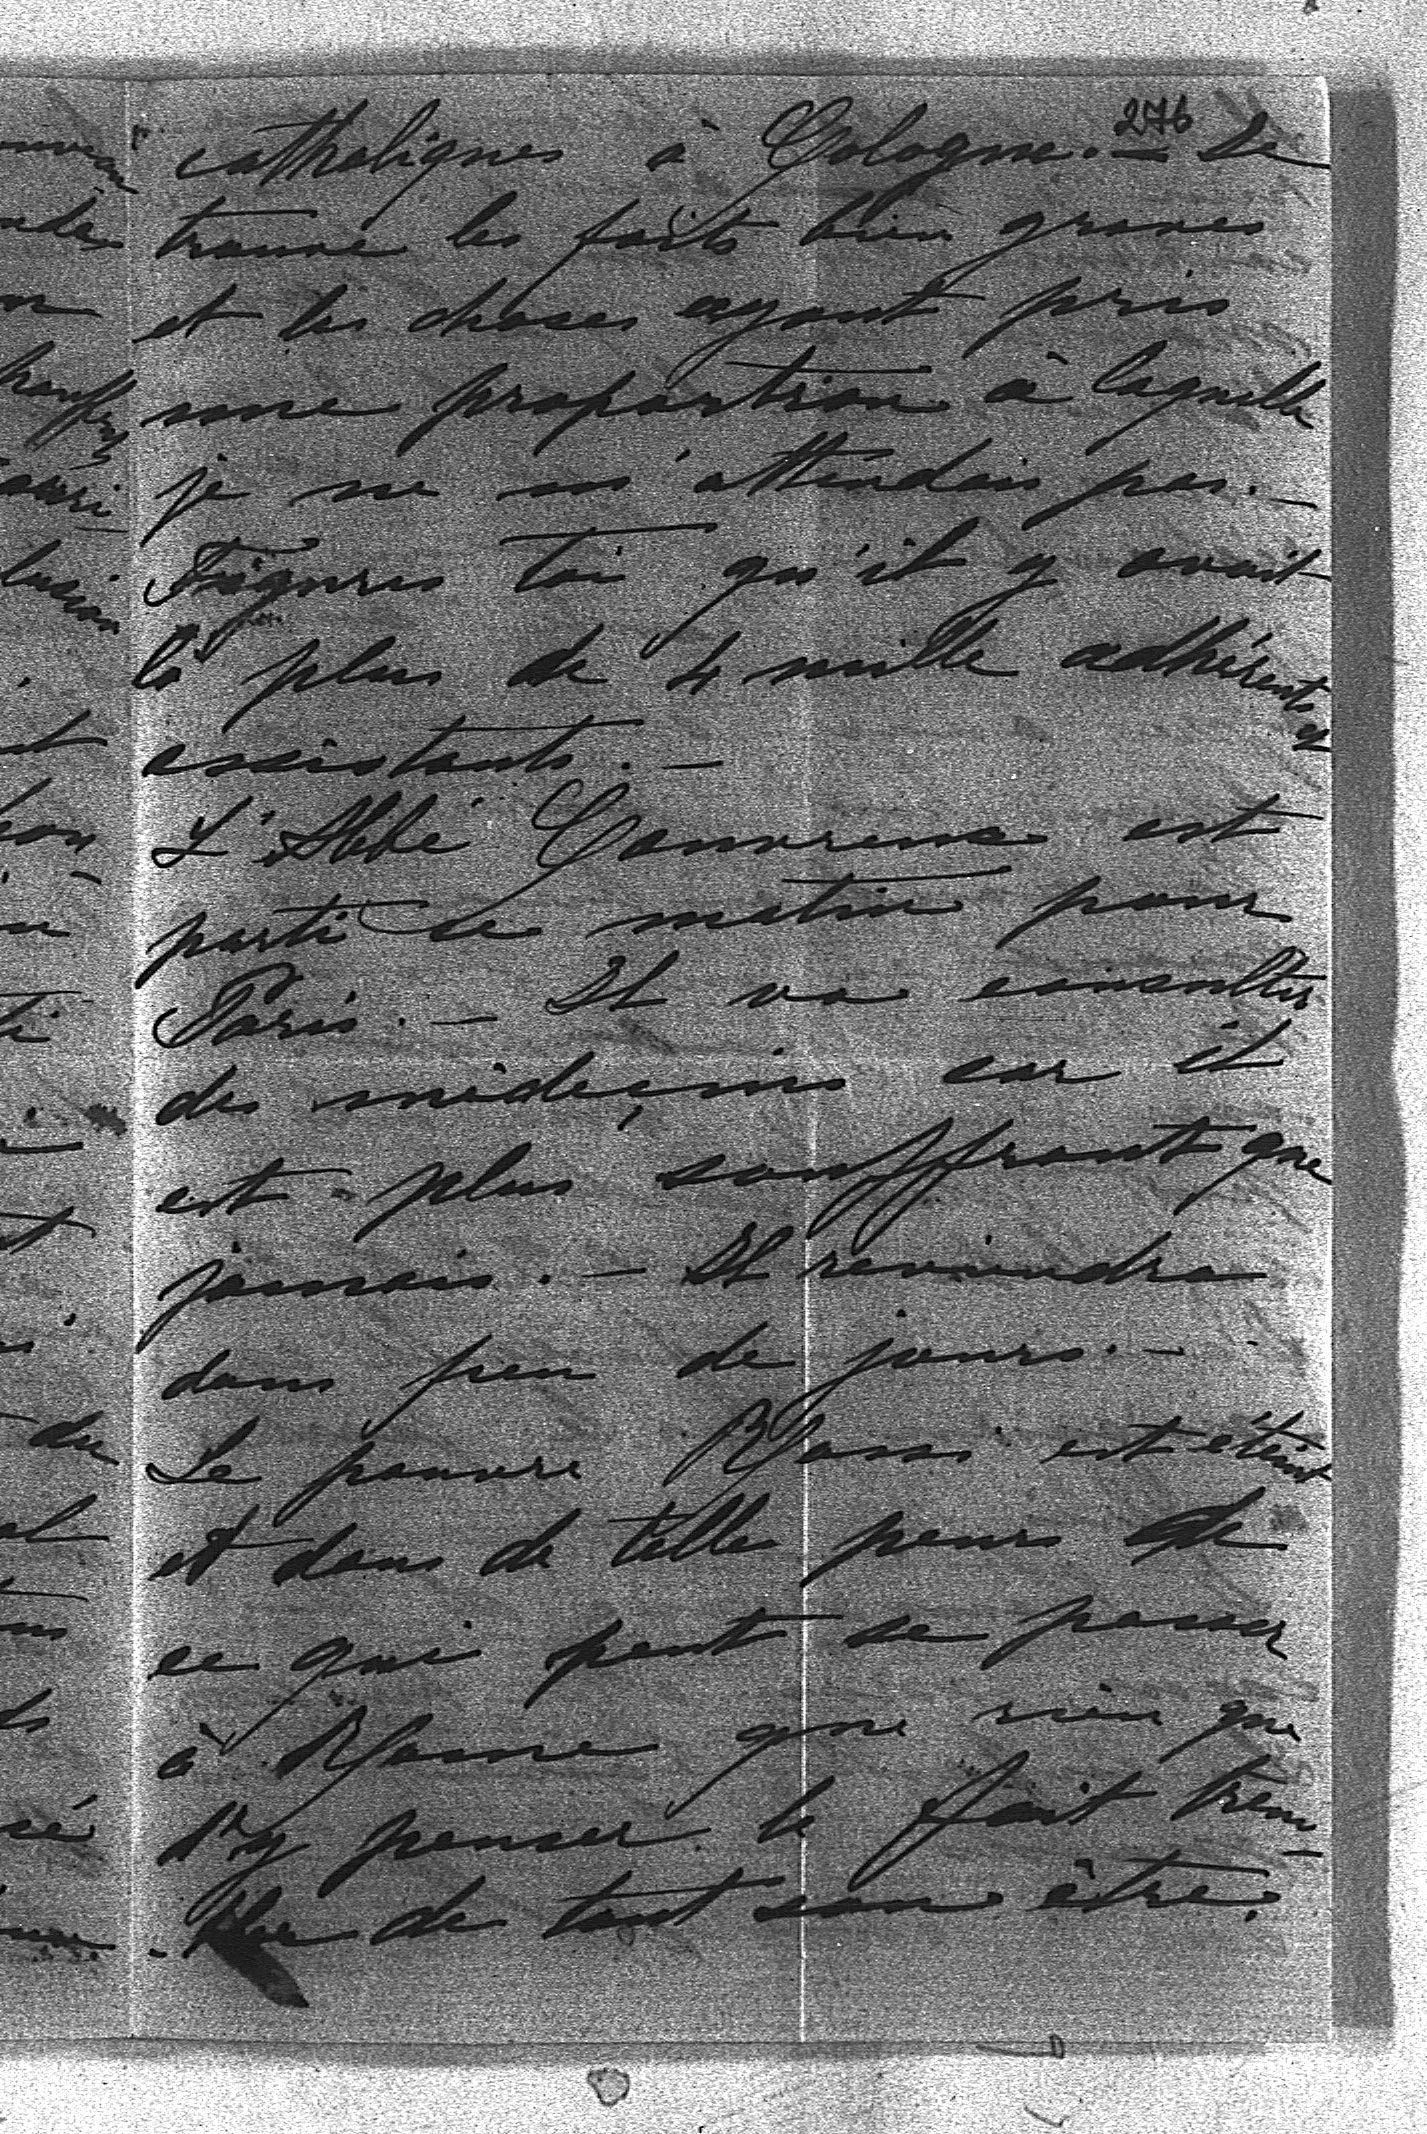 276
catholiques à Cologne. — Je
trouve les faits bien graves
et les choses ayant pris
une proportion à laquelle
je ne m'attendais pas. —
Figures toi qu'il y avait
là plus de 4 mille adhérents et
assistants. —
L'Abbé est
parti ce matin pour
Paris. — Il va consulter
des médeçins car il
est plus souffrant que
jamais. — Il reviendra
dans peu de jours. —
Le pauvre est éteint
et dans de telles peurs de
ce qui peut se passer
à Rome que rien que
d'y penser le fait trem-
-bler de tout son être.